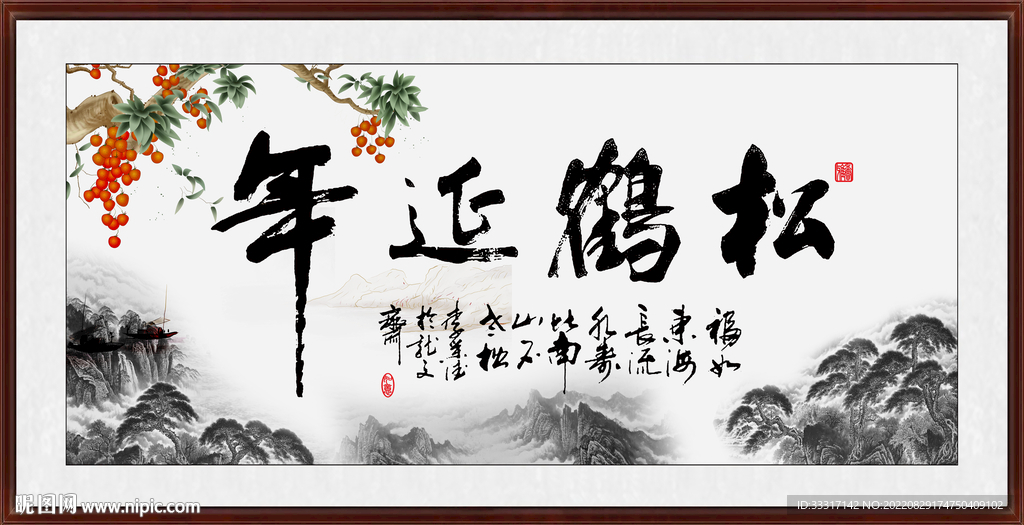 松鶴延年
福如
東海
長流
水壽
比南
山不
老松
於龍文
齋
昵图网 www.nipic.com
ID:33317142 NO:20220829174750409102